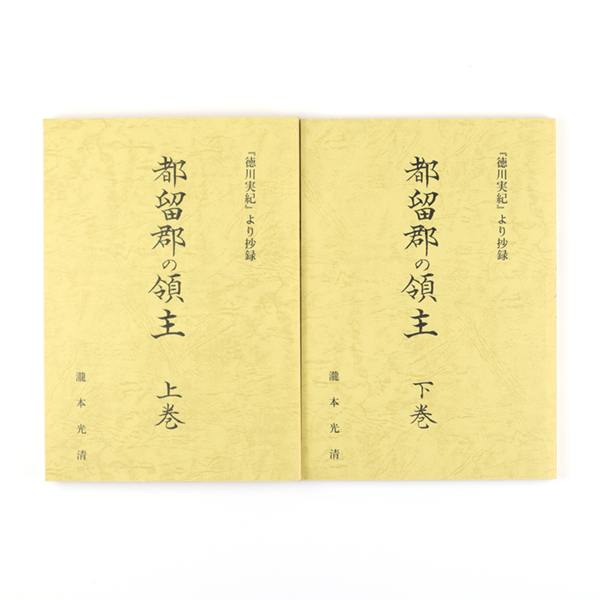 『徳川実紀』より抄録
都留郡の領主
上巻
瀧本光清
『徳川実紀』より抄録
都留郡の領主
下巻
瀧本光清